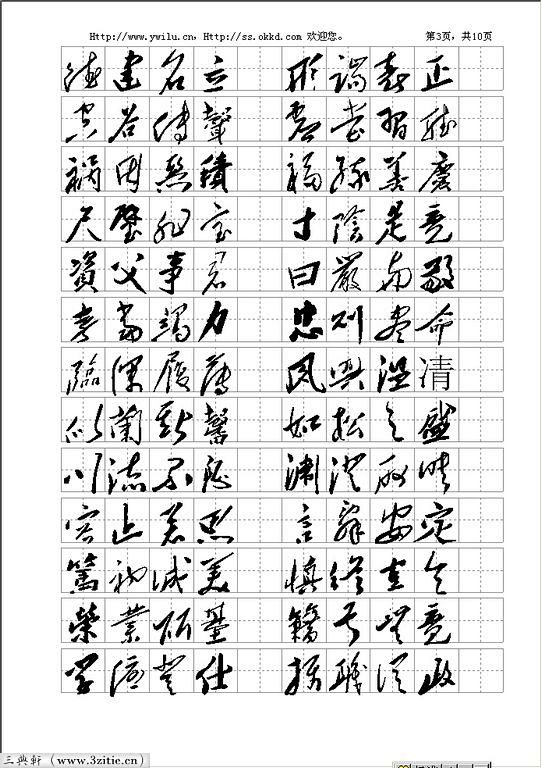 Http://www.ywilu.cn, Http://ss.okkd.com 欢迎您。 第3页，共10页
德建名立 形端表正
空谷傳聲 虛堂習聽
禍因惡積 福緣善慶
尺璧非寶 寸陰是竞
資父事君 曰嚴與敬
孝當竭力 忠則盡命
臨深履薄 夙興溫清
似蘭斯馨 如松之盛
川流不息 淵澄取映
容止若思 言辭安定
篤初誠美 慎終宜令
榮業所基 籍甚無竟
學優登仕 攝職從政
三典軒（www.3zitie.cn）